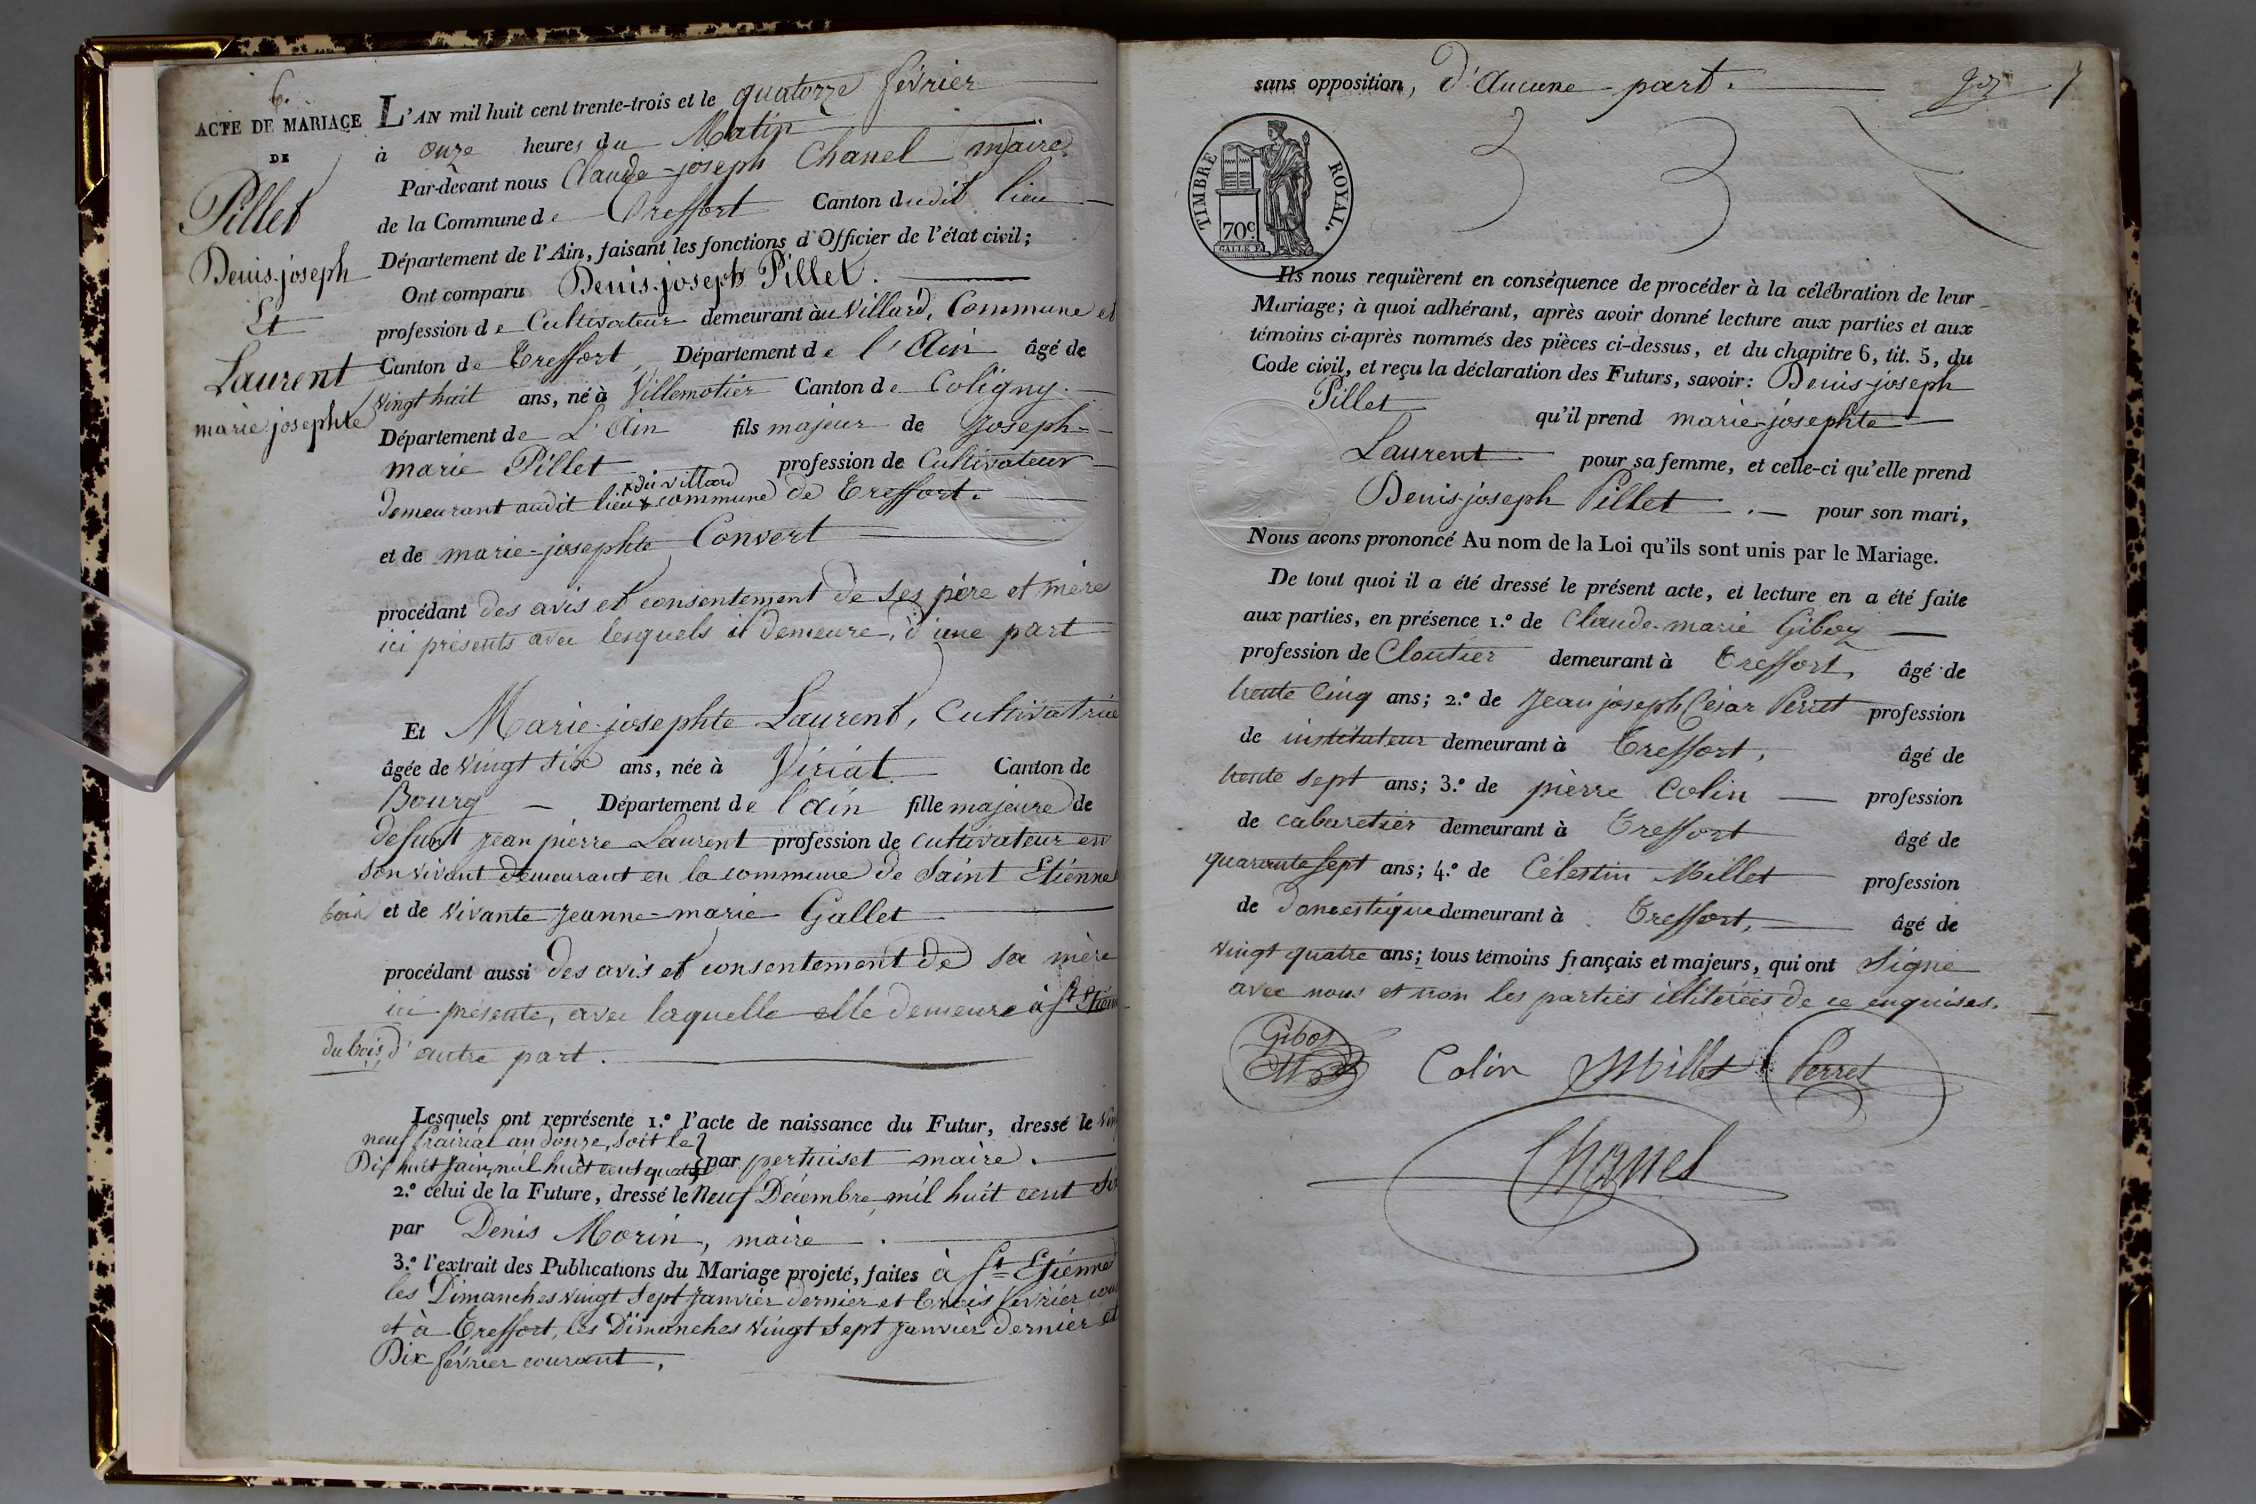 6.
ACTE DE MARIAGE
DE
Pillet
Denis-joseph
Et
Laurent
marie josephte
L'AN mil huit cent trente-trois et le quatorze février
à onze heures du Matin
Par-devant nous Claude-joseph Chanel maire
de la Commune de Treffort Canton dudit lieu
Département de l'Ain, faisant les fonctions d'Officier de l'état civil;
Ont comparu Denis-joseph Pillet.
profession de Cultivateur demeurant au Villard, Commune et
Canton de Treffort, Département de l'Ain âgé de
vingt huit ans, né à Villemotier Canton de Coligny.
Département de L'Ain fils majeur de Joseph-
marie Pillet profession de Cultivateur
x du villard
demeurant audit lieu x commune de Treffort.
et de marie-josephte Convert
procédant des avis et consentement de ses père et mère
ici présents avec lesquels il demeure, d'une part
Et Marie-josephte Laurent, Cultivatrice
âgée de vingt six ans, née à Viriat Canton de
Bourg Département de l'ain fille majeure de
défunt jean pierre Laurent profession de cultivateur en
son vivant demeurant en la commune de Saint Etienne
bois et de vivante jeanne-marie Gallet
procédant aussi des avis et consentement de sa mère
ici présente, avec laquelle elle demeure à St Etienne
du bois, d'autre part.
Lesquels ont représenté 1.° l'acte de naissance du Futur, dressé le
neuf prairial an douze, soit le
Dix huit juin mil huit cent quatre par pertuiset maire.
2.° celui de la Future, dressé le Neuf Décembre mil huit cent six
par Denis Morin, maire.
3.° l'extrait des Publications du Mariage projeté, faites à St Etienne
les Dimanches vingt sept janvier dernier et trois février
et à Treffort, les Dimanches vingt sept janvier dernier et
Dix février courant,
sans opposition, d'Aucune part.
7
TIMBRE ROYAL.
70c.
Ils nous requièrent en conséquence de procéder à la célébration de leur
Mariage; à quoi adhérant, après avoir donné lecture aux parties et aux
témoins ci-après nommés des pièces ci-dessus, et du chapitre 6, tit. 5, du
Code civil, et reçu la déclaration des Futurs, savoir: Denis-joseph
Pillet qu'il prend marie-josephte
Laurent pour sa femme, et celle-ci qu'elle prend
Denis-joseph Pillet. pour son mari,
Nous avons prononcé Au nom de la Loi qu'ils sont unis par le Mariage.
De tout quoi il a été dressé le présent acte, et lecture en a été faite
aux parties, en présence 1.° de Claude-marie Giboz
profession de Cloutier demeurant à Treffort, âgé de
trente Cinq ans; 2.° de Jean joseph César Perret profession
de instituteur demeurant à Treffort, âgé de
trente sept ans; 3.° de pierre Colin profession
de cabaretier demeurant à Treffort âgé de
quarante sept ans; 4.° de Célestin Millet profession
de Domestique demeurant à Treffort, âgé de
vingt quatre ans; tous témoins français et majeurs, qui ont signé
avec nous et non les parties illitérées de ce enquises.
Giboz
Colin Millet Perret
Chanel